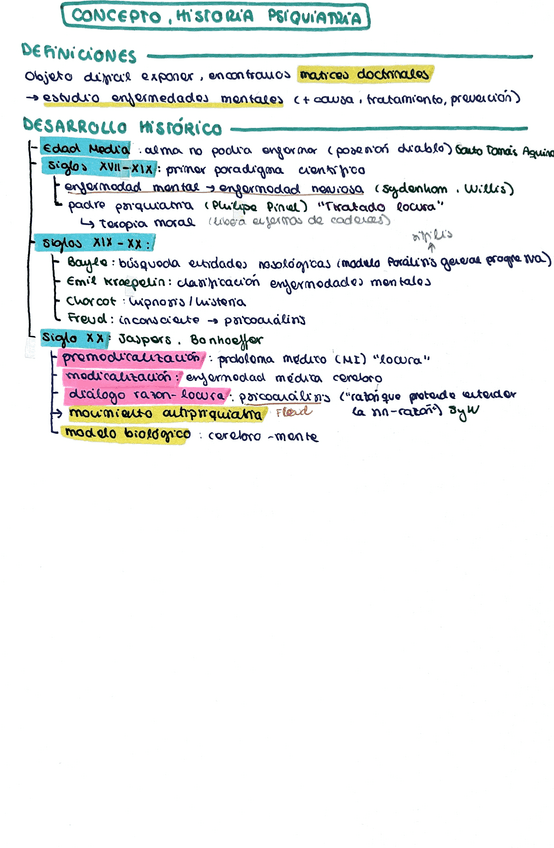 CONCEPTO, HISTORIA PSIQUIATRÍA
DEFINICIONES
Objeto difícil exponer, encontramos matices doctrinales
→ estudio enfermedades mentales (+ causa, tratamiento, prevención)
DESARROLLO HISTÓRICO
Edad Media: alma no podía enfermar (posesión diablo) Santo Tomás Aquino
Siglos XVII-XIX: primer paradigma científico
enfermedad mental → enfermedad nerviosa (Sydenham, Willis)
padre psiquiatría (Philipe Pinel) "Tratado locura"
↳ Terapia moral (libera enfermos de cadenas)
Siglos XIX-XX:
sífilis
Bayle: búsqueda entidades nosológicas (modelo Parálisis general progresiva)
Emil Kraepelin: clasificación enfermedades mentales
Charcot: hipnosis/histeria
Freud: inconsciente → psicoanálisis
Siglo XX: Jaspers, Bonhoeffer
premedicalización: problema médico (NI) "locura"
medicalización: enfermedad médica cerebro
diálogo razón-locura: psicoanálisis ("razón que pretende entender
la nn-razón") SyW
→ movimiento antipsiquiatría
modelo biológico: cerebro-mente